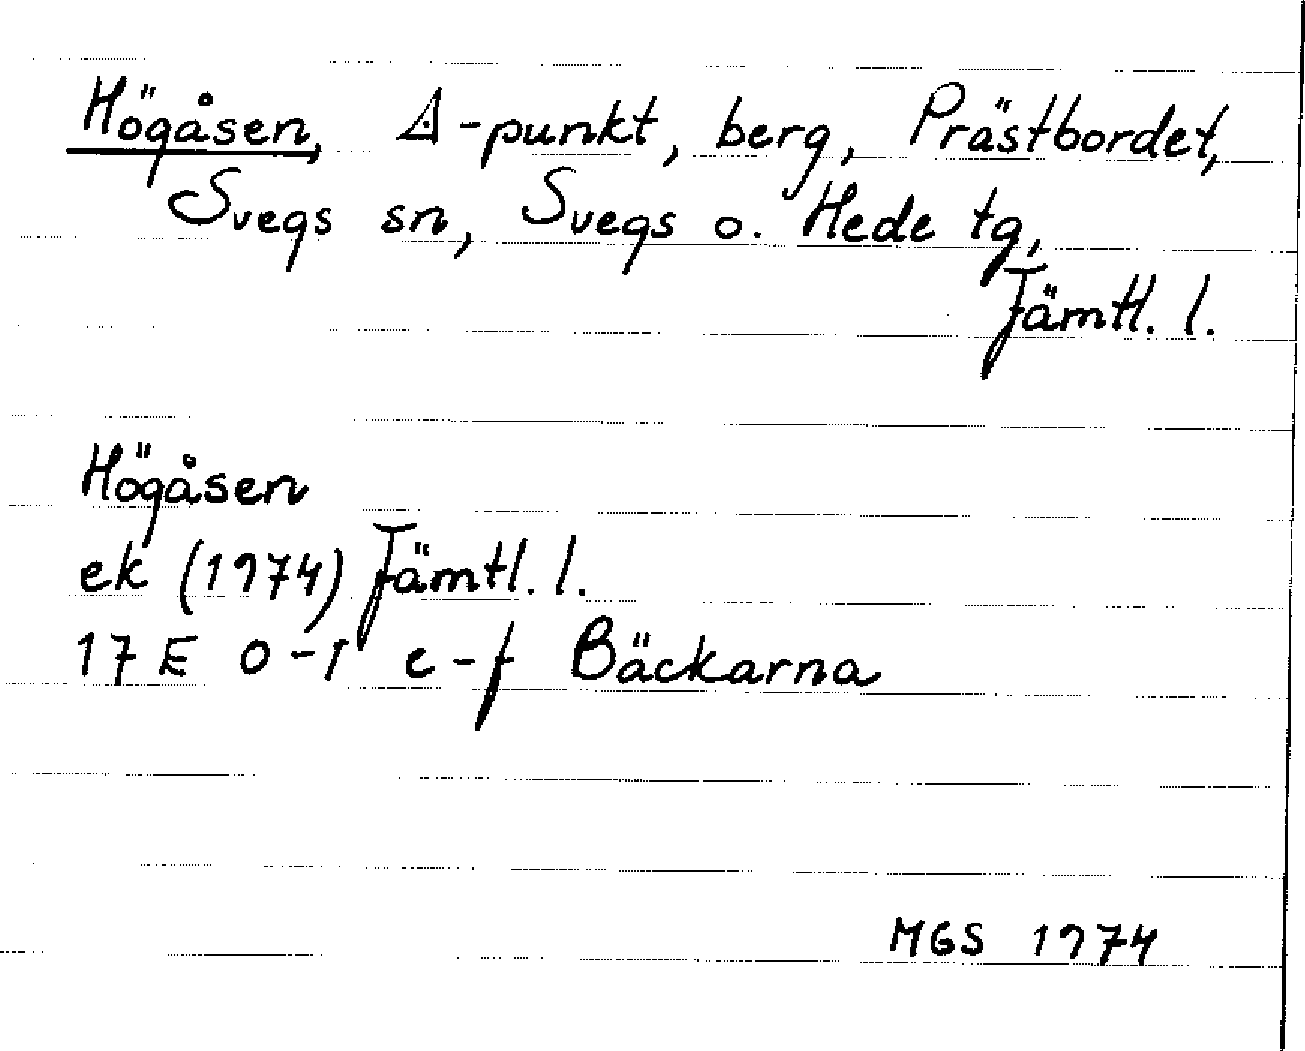 Högåsen, ◬-punkt, berg, Prästbordet,
Svegs sn, Svegs o. Hede tg,
Jämtl. l.
Högåsen
ek (1974) Jämtl. l.
17 E 0-1 e-f Bäckarna
MGS 1974